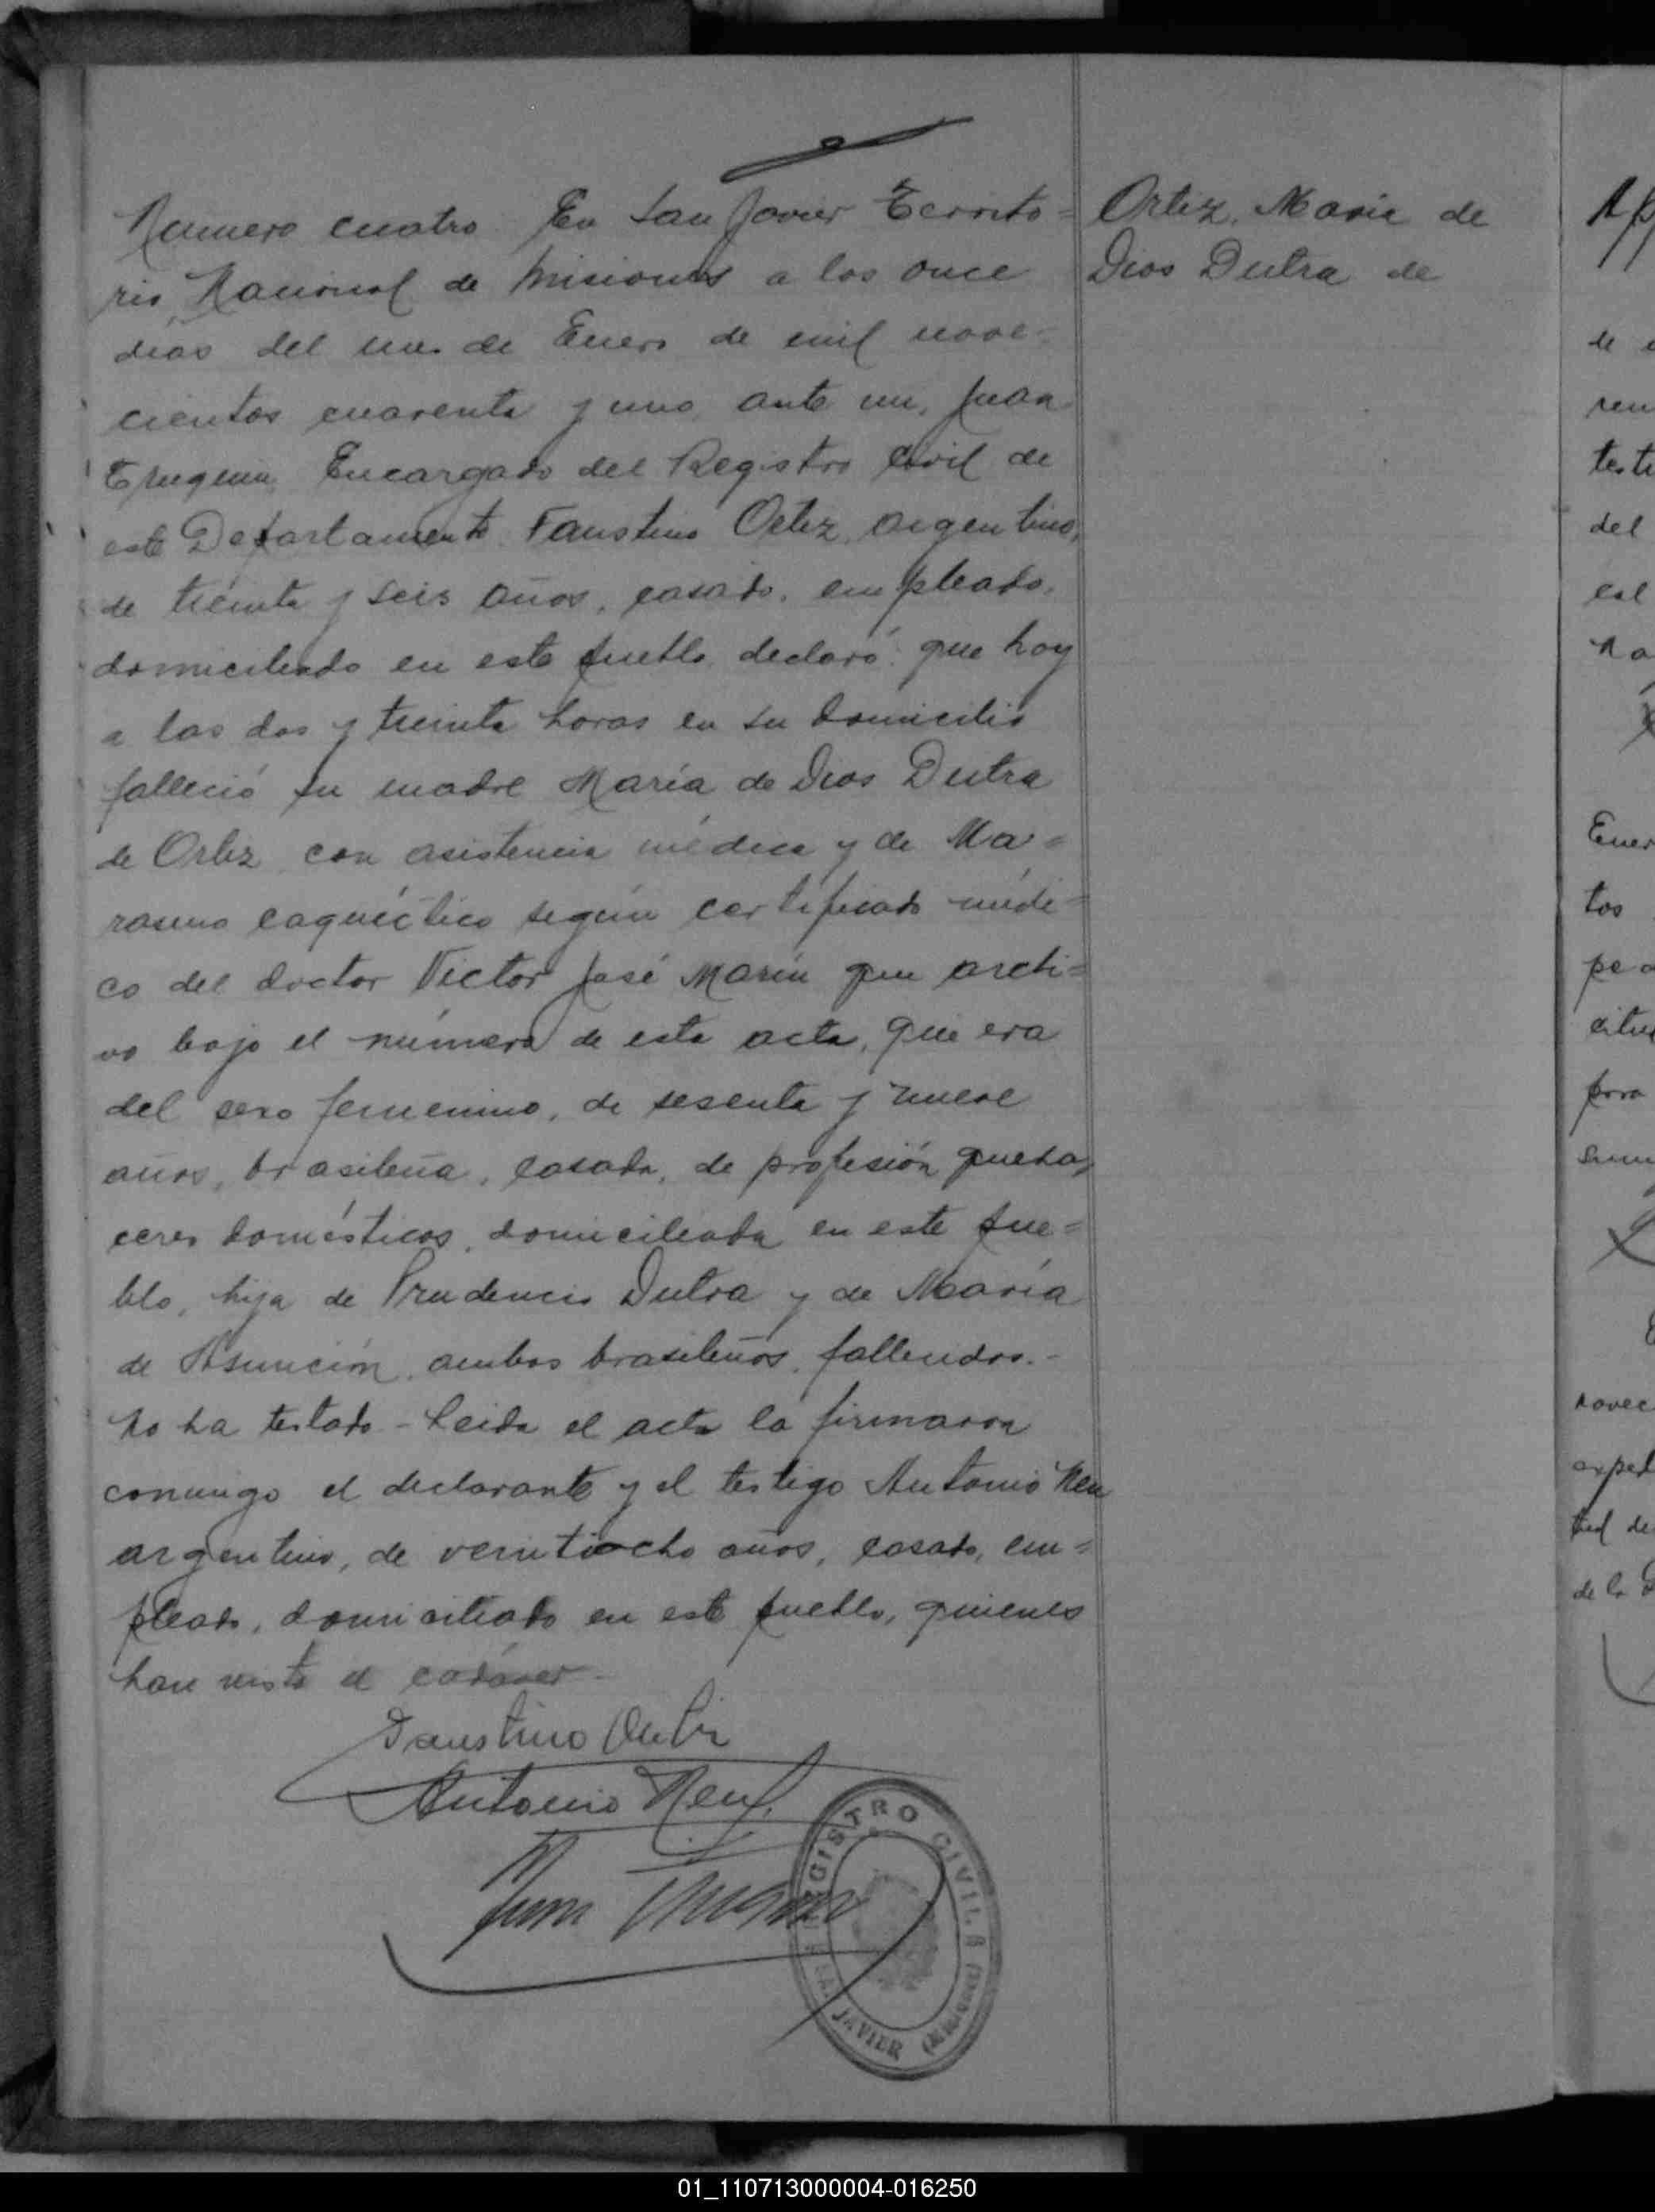 Número cuatro. En San Javier Territo=
rio Nacional de Misiones a los once
días del mes de Enero de mil nove-
cientos cuarenta y uno, ante mi, Juan
Encargado del Registro Civil de
este Departamento Faustino Ortiz, argentino,
de treinta y seis años, casado, empleado,
domiciliado en este pueblo, declaró: que hoy
a las dos y treinta horas en su domicilio
falleció su madre María de Dios Dutra
de Ortiz, con asistencia médica y de Ma=
rasmo caquéctico según certificado médi=
co del doctor Victor José Marín que archi=
vo bajo el número de esta acta, que era
del sexo femenino, de sesenta y nueve
años, brasileña, casada, de profesión queha,
ceres domésticos, domiciliada en este pue=
blo, hija de Prudencio Dutra y de María
de Asunción, ambos brasileños, fallecidos.-
No ha testado - Leida el acta la firmaron
conmigo el declarante y el testigo Antonio
argentino, de veintiocho años, casado, em=
pleado, domiciliado en este pueblo, quienes
han visto el cadáver.-
Faustino Ortiz
Antonio
Juan
REGISTRO CIVIL
SAN JAVIER (MISIONES)
Ortiz, María de
Dios Dutra de
de
ren
testi
del
cal
na
Ener
tos
para
novec
exped
tud de
de la
01_110713000004-016250